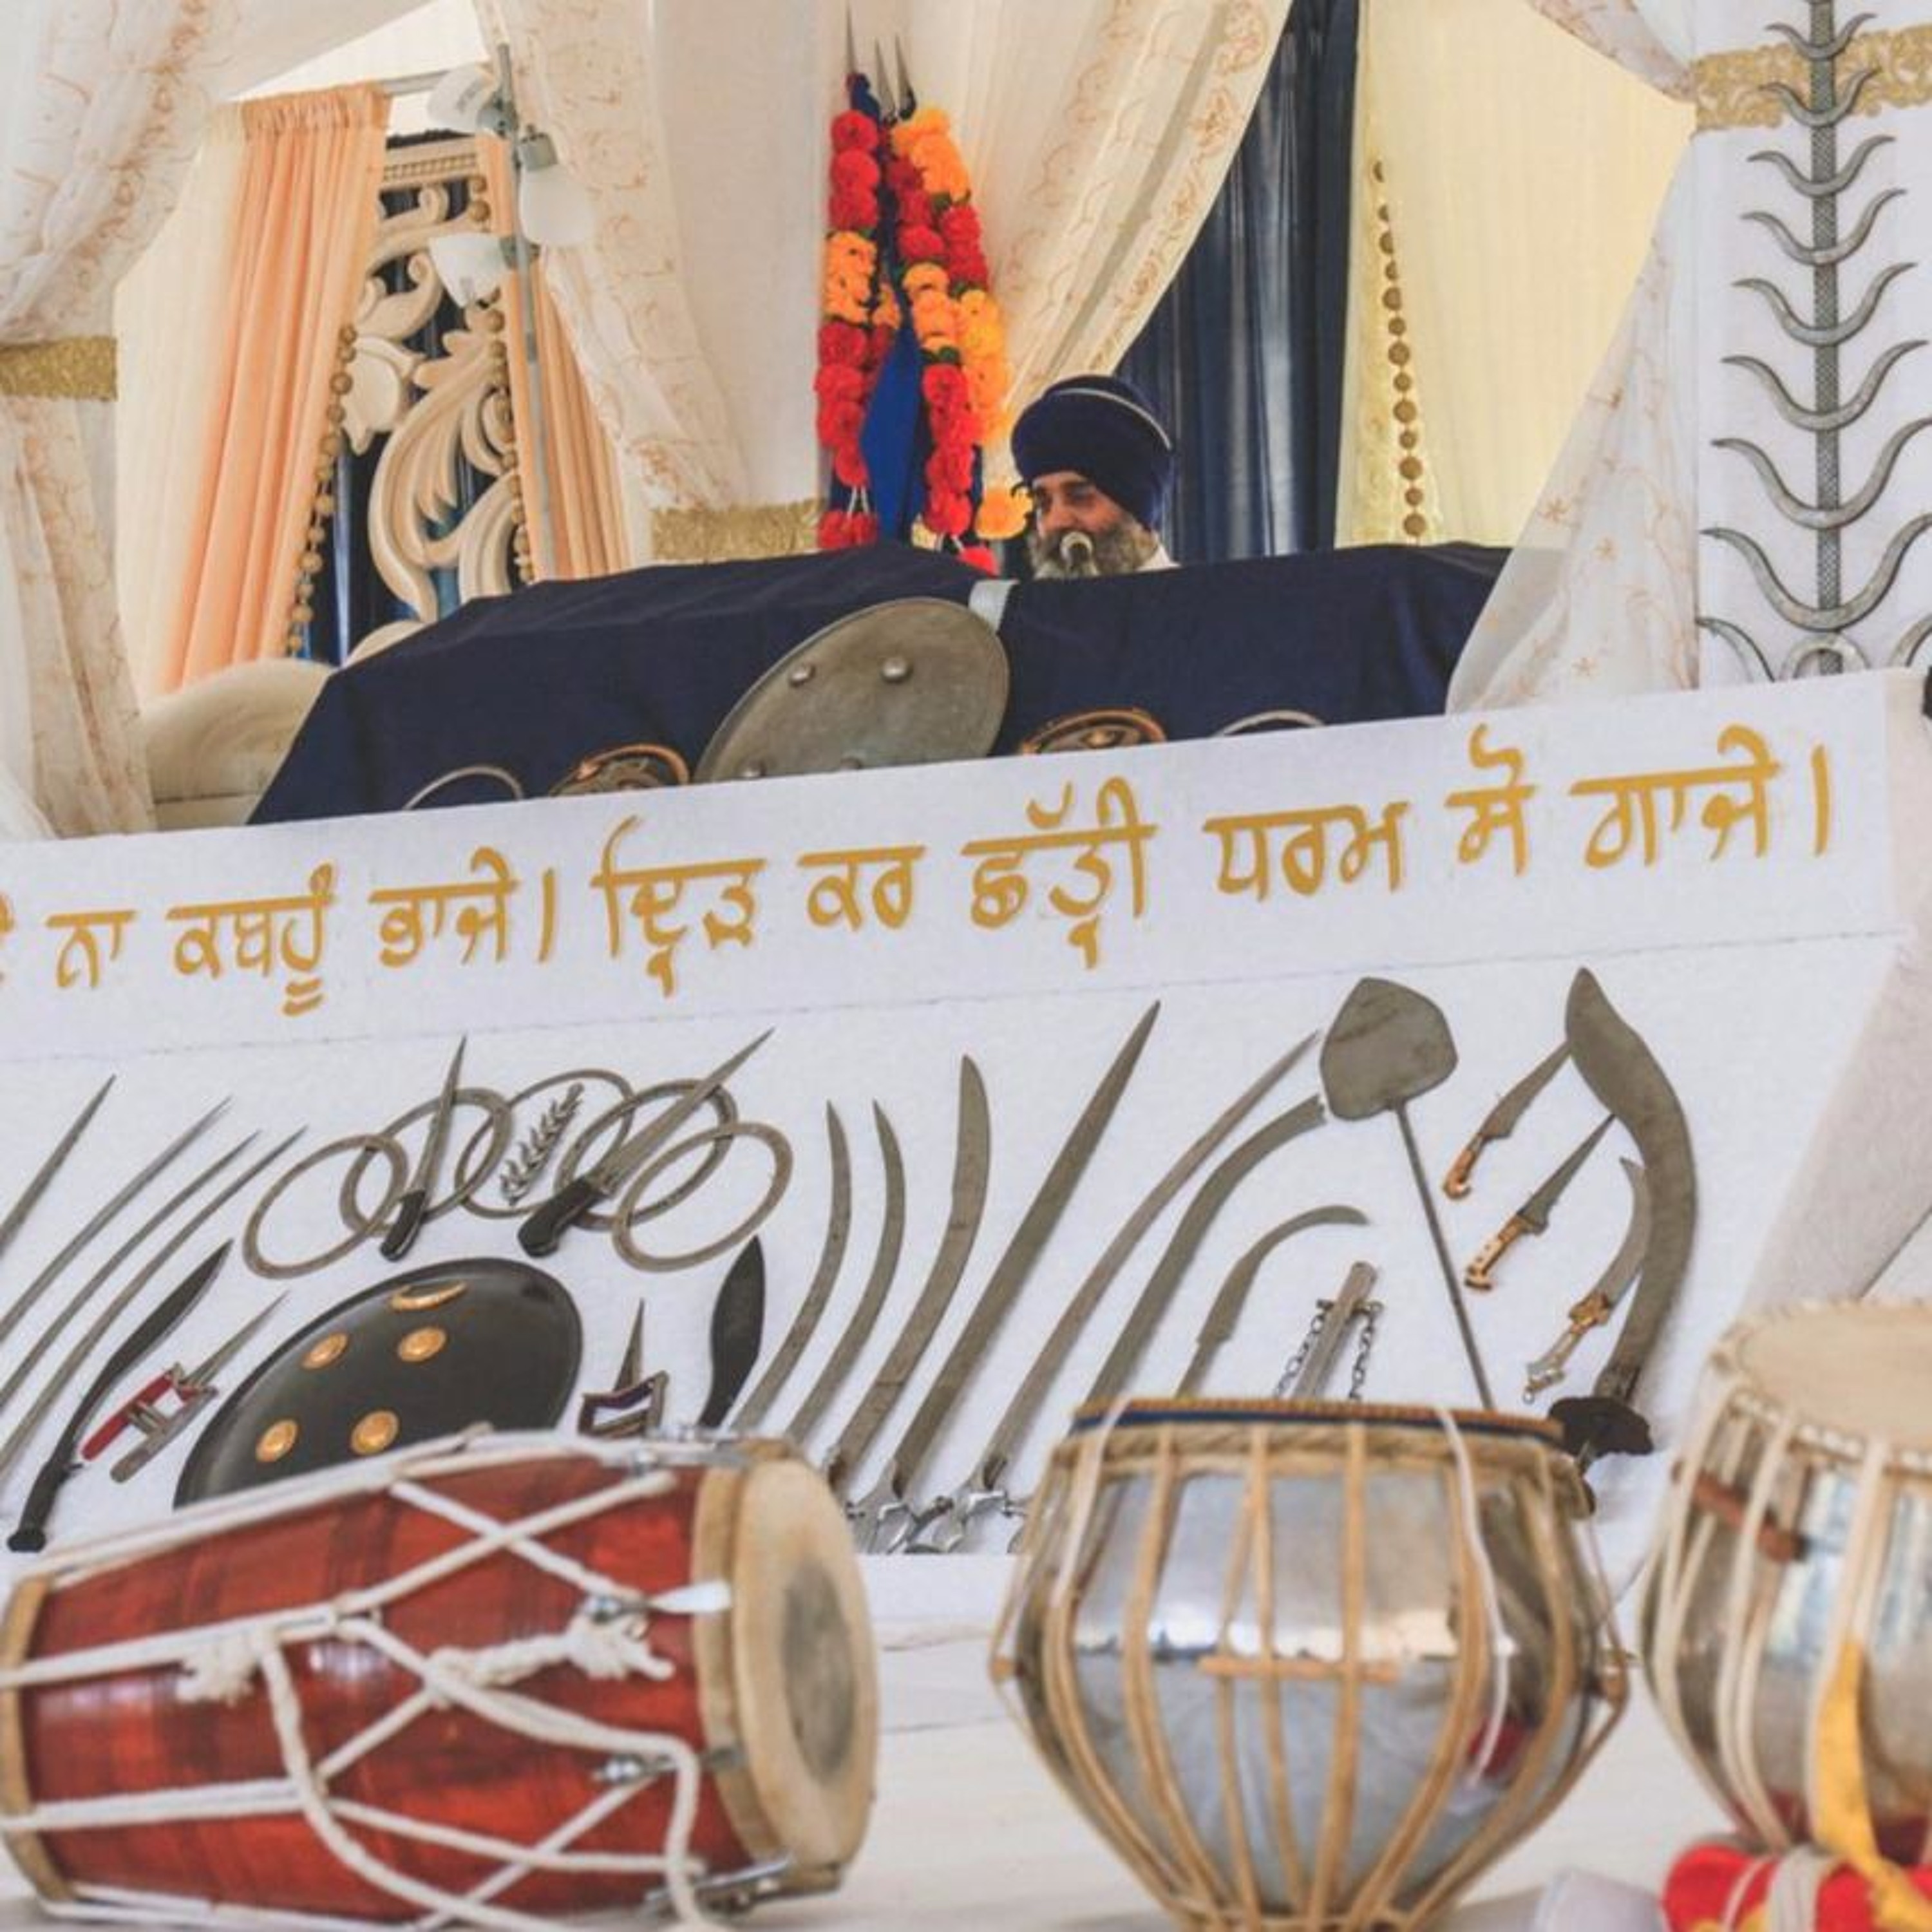 ਨਾ ਕਬਹੂੰ ਭਾਜੇ। ਦ੍ਰਿੜ ਕਰ ਛੱਤ੍ਰੀ ਧਰਮ ਸੋ ਗਾਜੇ।